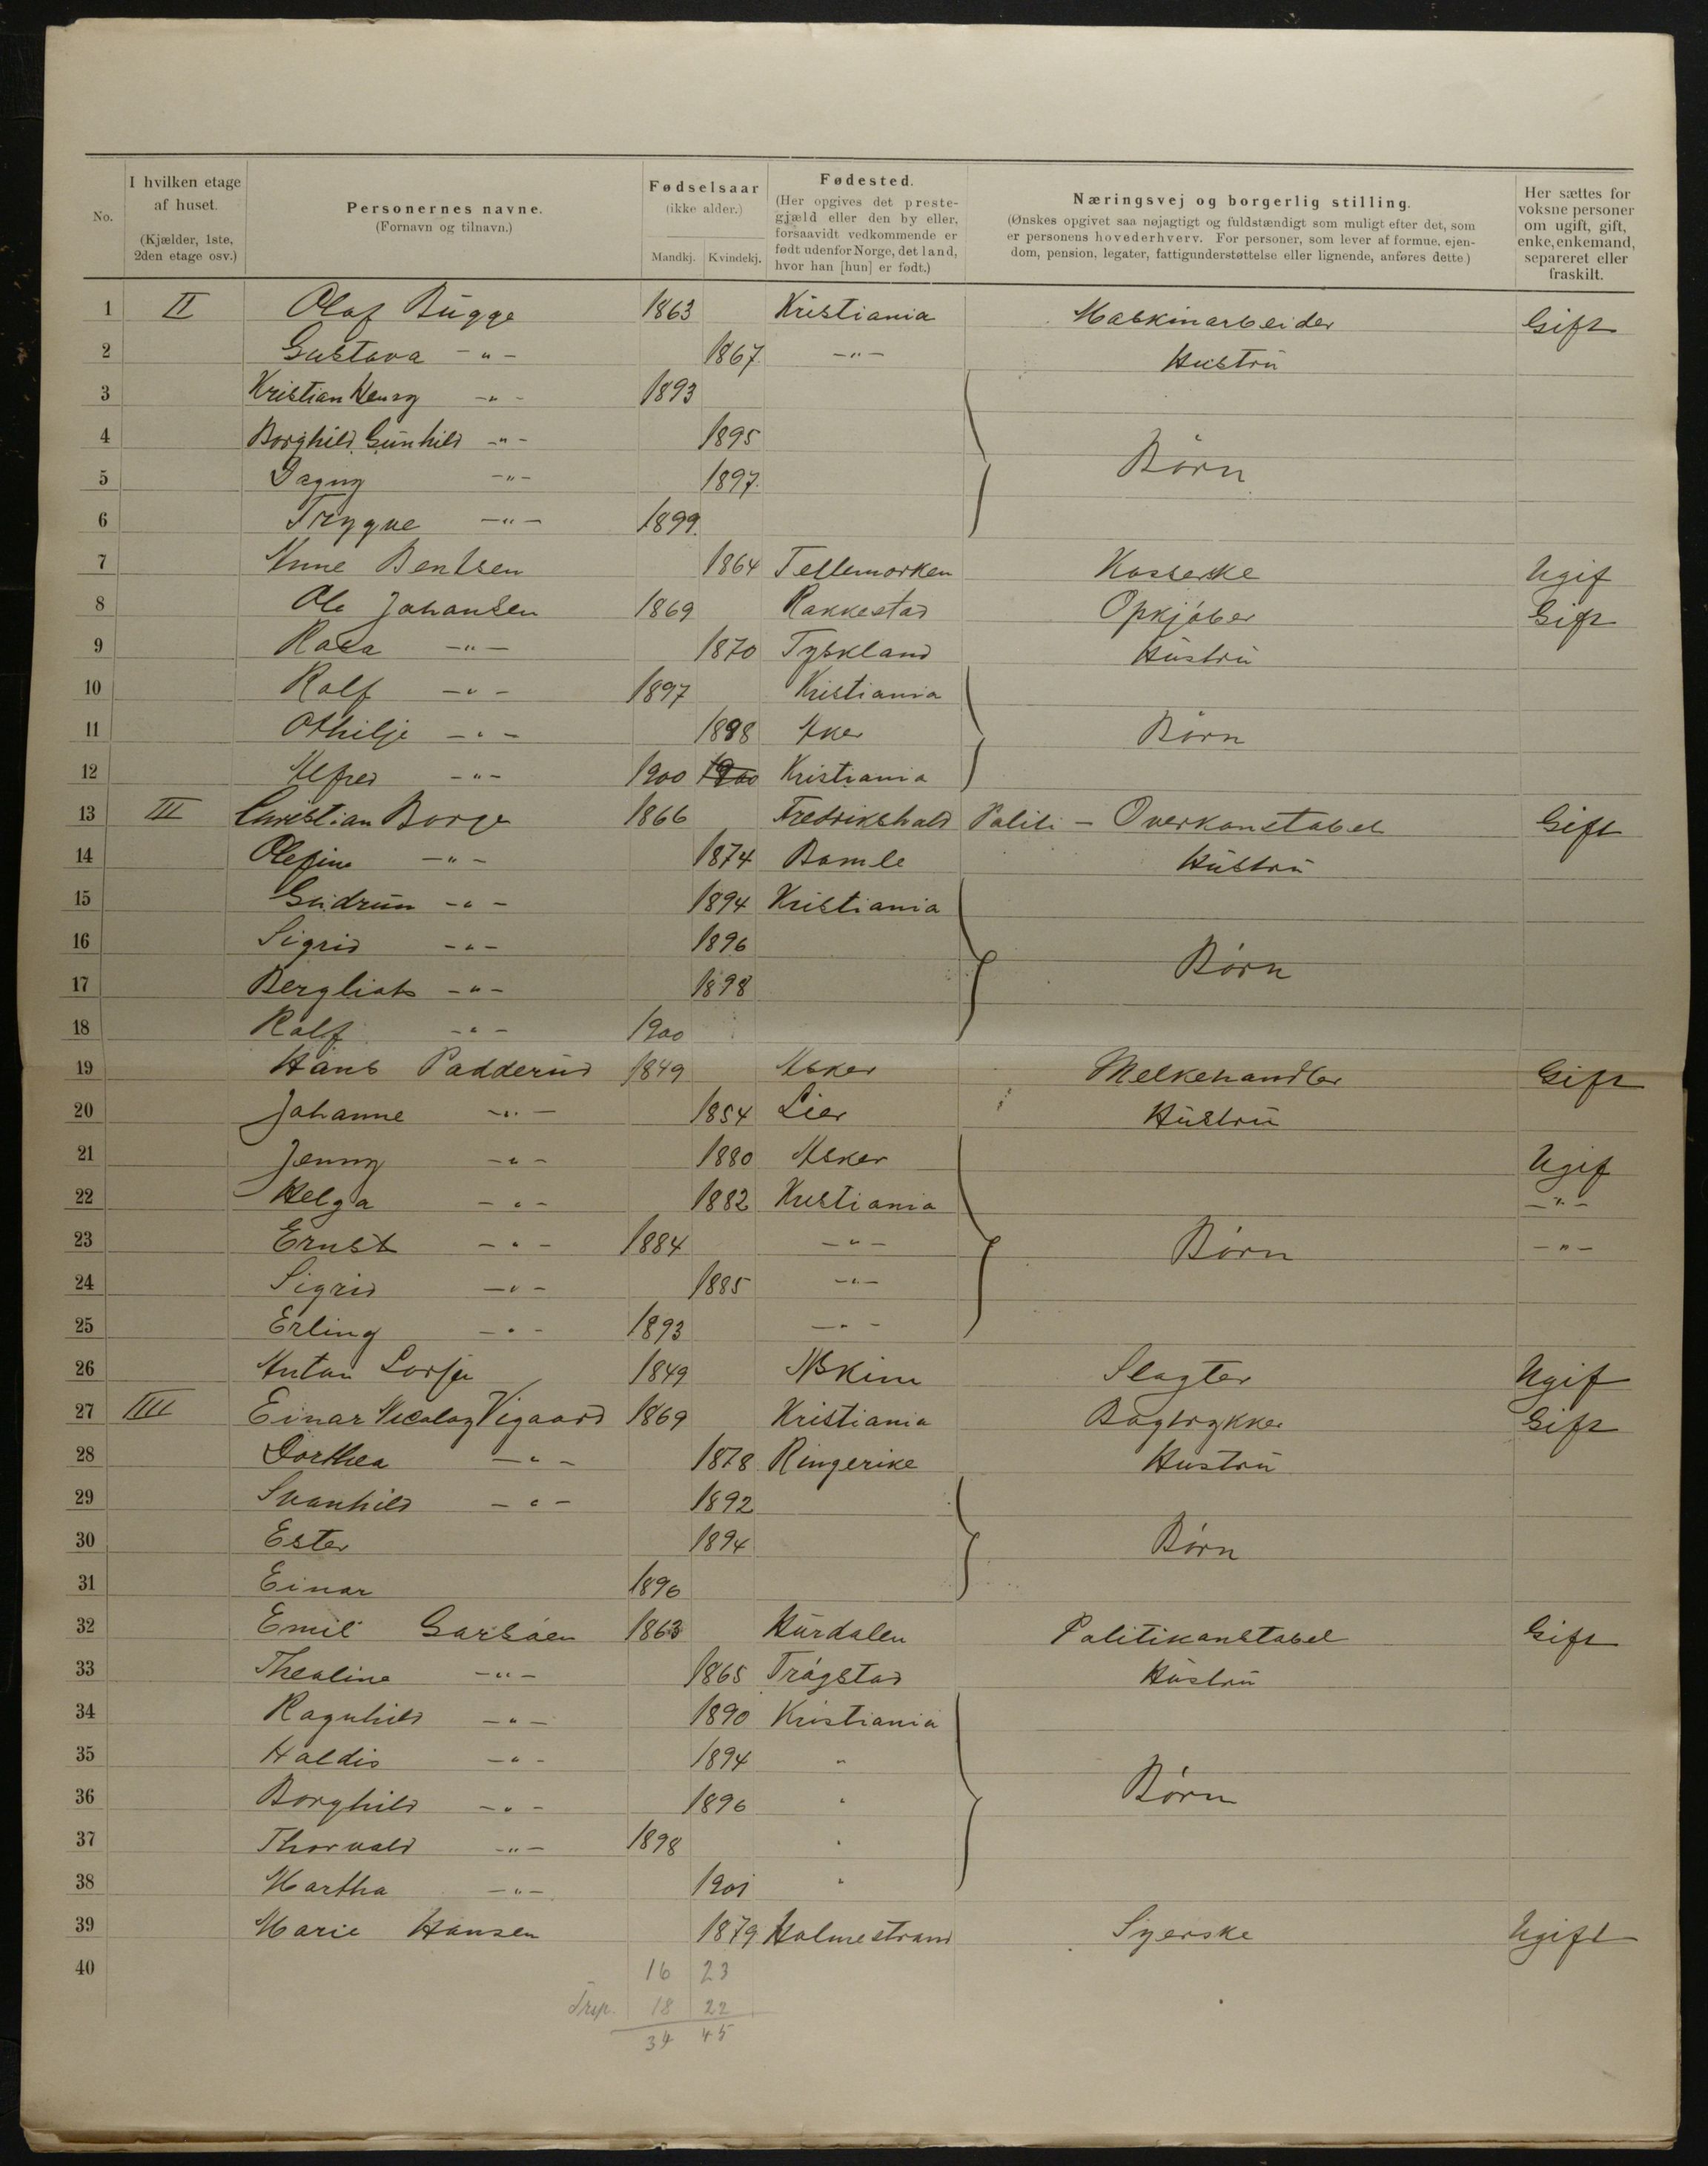 No. | I hvilken etage af huset. (Kjælder, 1ste, 2den etage osv.) | Personernes navne. (Fornavn og tilnavn.) | Fødselsaar (ikke alder.) Mandkj. | Kvindekj. | Fødested. (Her opgives det prestegjæld eller den by eller, forsaavidt vedkommende er født udenfor Norge, det land, hvor han [hun] er født.) | Næringsvej og borgerlig stilling. (Ønskes opgivet saa nøjagtigt og fuldstændigt som muligt efter det, som er personens hovederhverv. For personer, som lever af formue, ejendom, pension, legater, fattigunderstøttelse eller lignende, anføres dette.) | Her sættes for voksne personer om ugift, gift, enke, enkemand, separeret eller fraskilt.
1 II Olaf Bugge 1863 Kristiania Maskinarbeider Gift
2 Gustava -"- 1867 -"- Hustru
3 Kristian Henry -"- 1893
4 Borghild Gunhild -"- 1895 Børn
5 Dagny -"- 1897
6 Trygve -"- 1899
7 Anne Bentsen 1864 Tellemarken Ugif
8 Ole Johansen 1869 Rakkestad Opkjøber Gift
9 Rosa -"- 1870 Tyskland Hustru
10 Ralf -"- 1897 Kristiania
11 Othilje -"- 1898 Aker Børn
12 Alfred -"- 1900 1900 Kristiania
13 III Christian Borge 1866 Fredrikshald Politi - Overkonstabel Gift
14 Olefine -"- 1874 Bamle Hustru
15 Gudrun -"- 1894 Kristiania
16 Sigrid -"- 1896 Børn
17 Bergliot -"- 1898
18 Ralf -"- 1900
19 Hans Padderud 1849 Asker Melkehandler Gift
20 Johanne -"- 1854 Lier Hustru
21 Jenny -"- 1880 Asker Ugif
22 Helga -"- 1882 Kristiania -"-
23 Ernst -"- 1884 -"- Børn -"-
24 Sigrid -"- 1885 -"-
25 Erling -"- 1893 -"-
26 Anton 1849 Askim Slagter Ugif
27 IIII Einar Nicolay Vigaard 1869 Kristiania Bogtrykker Gift
28 Dorthea -"- 1878 Ringerike Hustru
29 Svanhild -"- 1892
30 Ester 1894 Børn
31 Einar 1896
32 Emil Garsøen 1863 Hurdalen Politikonstabel Gift
33 Thealine -"- 1865 Trøgstad Hustru
34 Ragnhild -"- 1890 Kristiania
35 Haldis -"- 1894 "
36 Borghild -"- 1896 " Børn
37 Thorvald -"- 1898 "
38 Martha -"- 1901 "
39 Marie Hansen 1879 Holmestrand Syerske Ugift
40
16 23
Trsp. 18 22
34 45